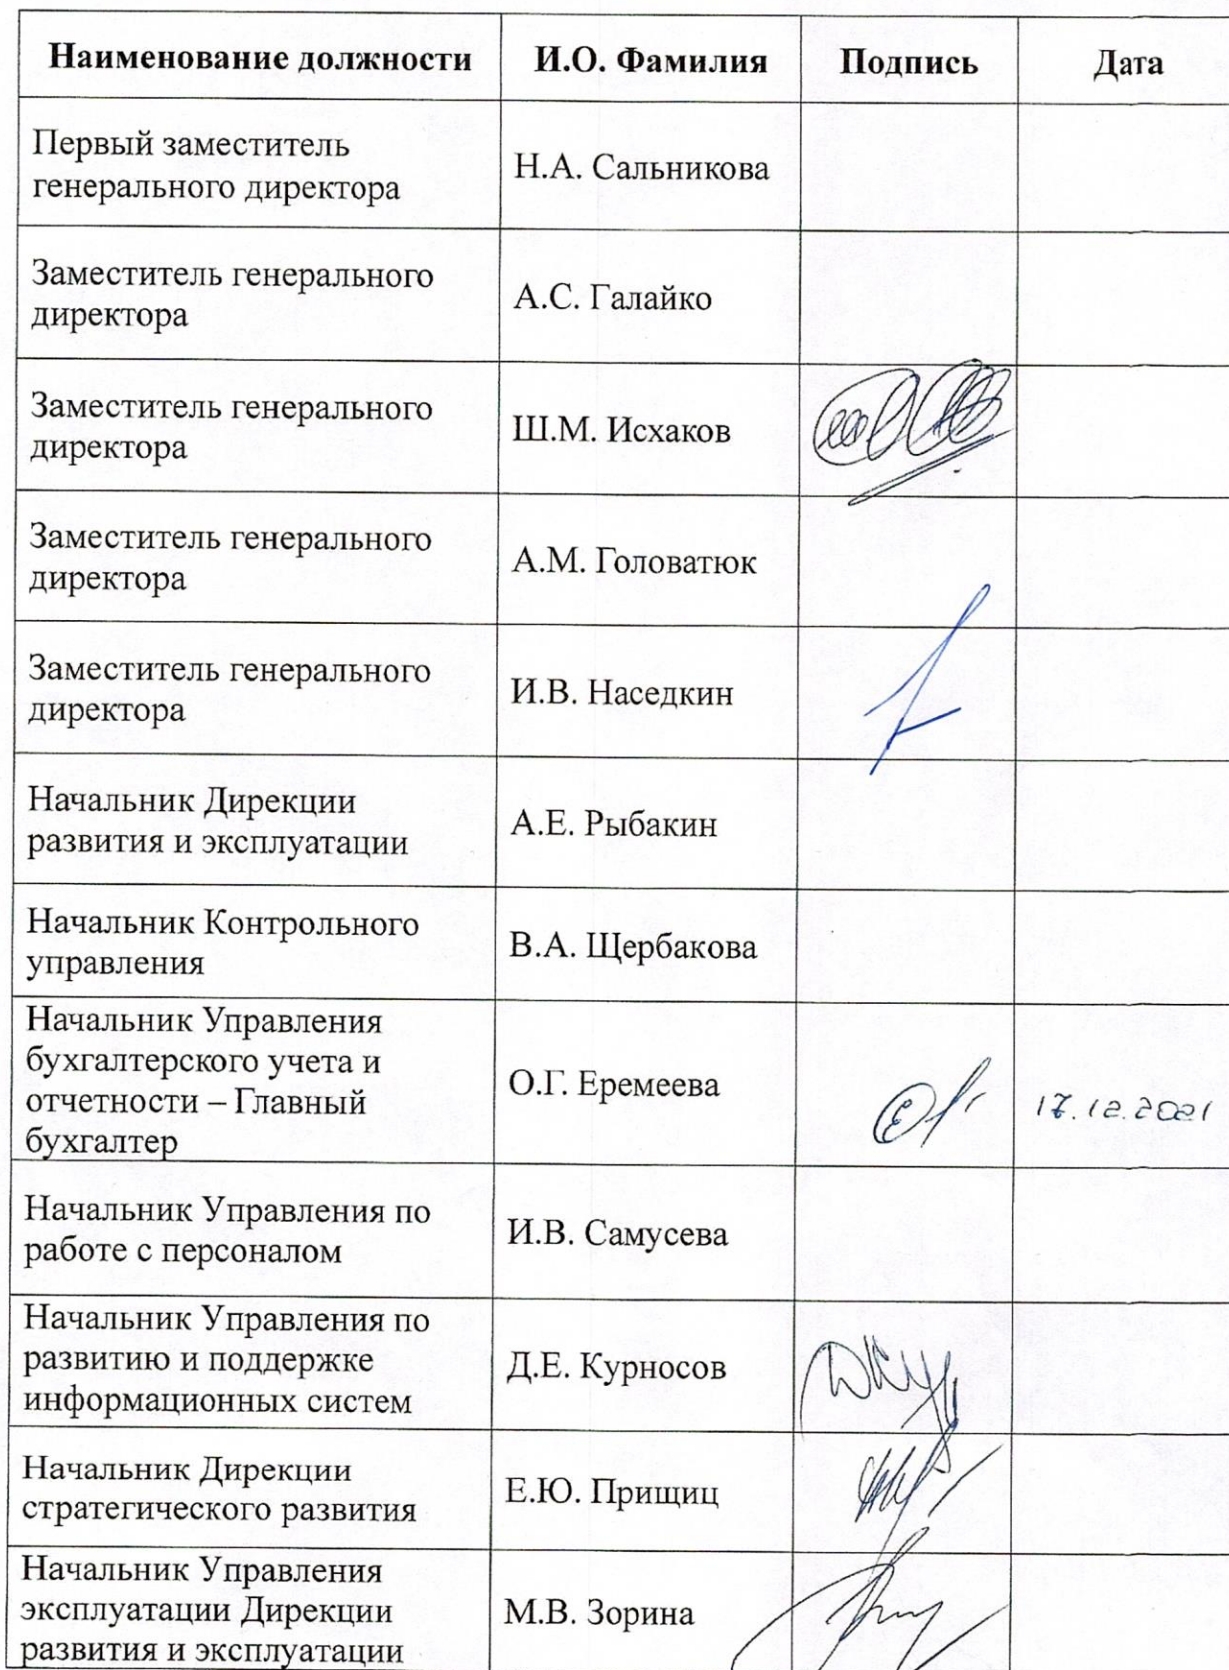 Наименование должности И.О. Фамилия Подпись Дата
Первый заместитель
генерального директора
Н.А. Сальникова
Заместитель генерального
директора
А.С. Галайко
Заместитель генерального
директора
Ш.М. Исхаков
Заместитель генерального
директора
А.М. Головатюк
Заместитель генерального
директора
И.В. Наседкин
Начальник Дирекции
развития и эксплуатации
А.Е. Рыбакин
Начальник Контрольного
управления
В.А. Щербакова
Начальник Управления
бухгалтерского учета и
отчетности – Главный
бухгалтер
О.Г. Еремеева
17.12.2021
Начальник Управления по
работе с персоналом
И.В. Самусева
Начальник Управления по
развитию и поддержке
информационных систем
Д.Е. Курносов
Начальник Дирекции
стратегического развития
Е.Ю. Прищиц
Начальник Управления
эксплуатации Дирекции
развития и эксплуатации
М.В. Зорина